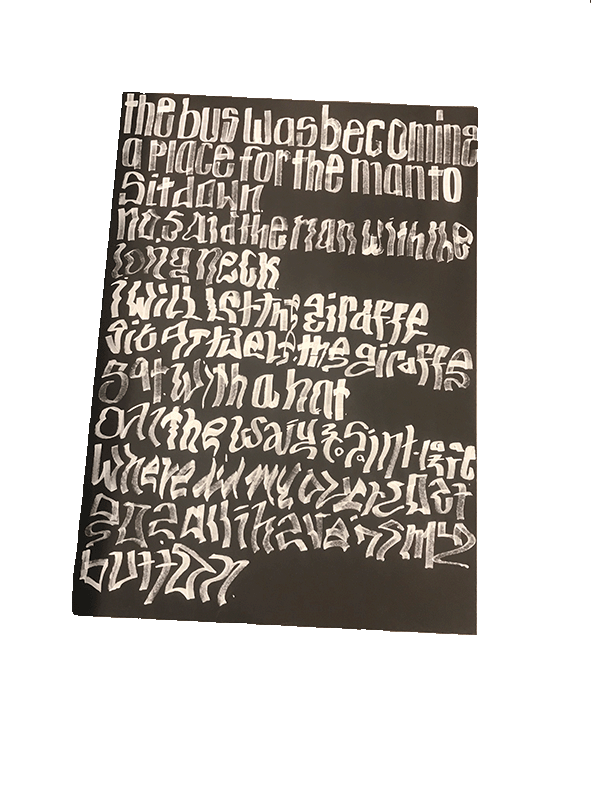 the bus was becoming
a place for the man to
sit down
no. said the man with the
long neck
i will let the giraffe
sit the giraffe
sat with a hat
on the way
where did my
all i have is my
button